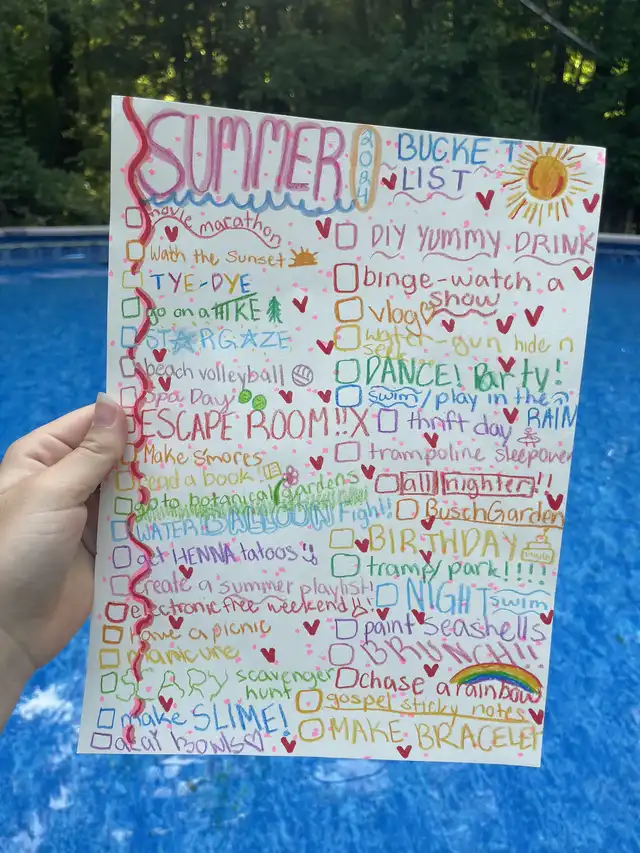 SUMMER 2024
BUCKET
LIST
movie marathon
Wath the Sunset
TYE-DYE
go on a HIKE
STARGAZE
beach volleyball
Spa Day
ESCAPE ROOM!!X
Make S'mores
read a book
go to botanical gardens
WATER BALLOON Fight!
get HENNA tatoos
create a summer playlist!
electronic free weekend
have a picnic
manicure
SCARY scavenger
hunt
make SLIME!
acai bowls
DIY YUMMY DRINK
binge-watch a
show
vlog
water-gun hide n
seek
DANCE! Party!
swim/play in the
RAIN
thrift day
trampoline sleepover
all nighter!!
Busch Garden
BIRTHDAY
tramp/park!!!!
NIGHT swim
paint seashells
BRUNCH!!
chase a rainbow
gospel sticky notes
MAKE BRACELET